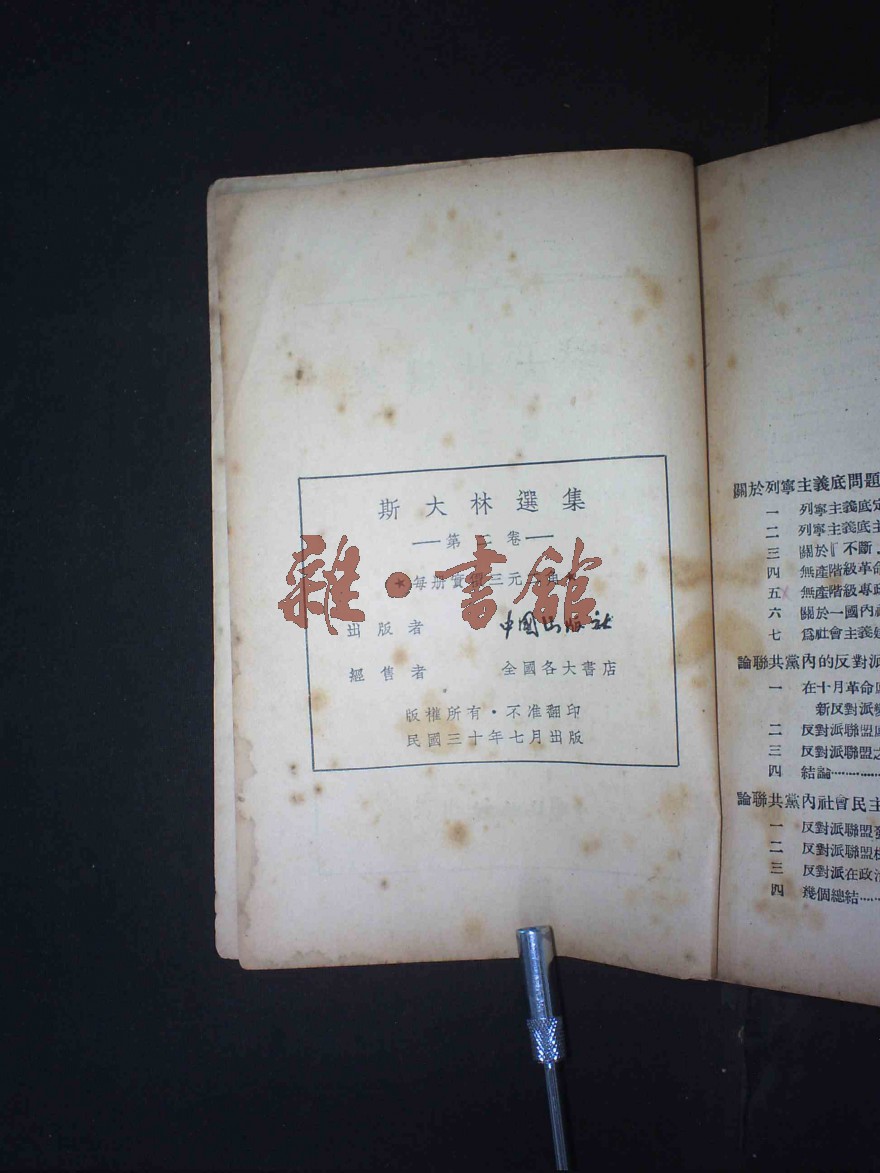 斯大林選集
——第二卷——
★每册實價三元
出版者 中國出版社
經售者 全國各大書店
版權所有・不准翻印
民國三十年七月出版
雜・書館
關於列寧主義底問題
一 列寧主義底定
二 列寧主義底主
三 關於『不斷
四 無產階級革命
五 無產階級專政
六 關於一國內
七 爲社會主義
論聯共黨內的反對派
一 在十月革命
新反對派
二 反對派聯盟
三 反對派聯盟之
四 結論………
論聯共黨內社會民主
一 反對派聯盟
二 反對派聯盟
三 反對派在政治
四 幾個總結……